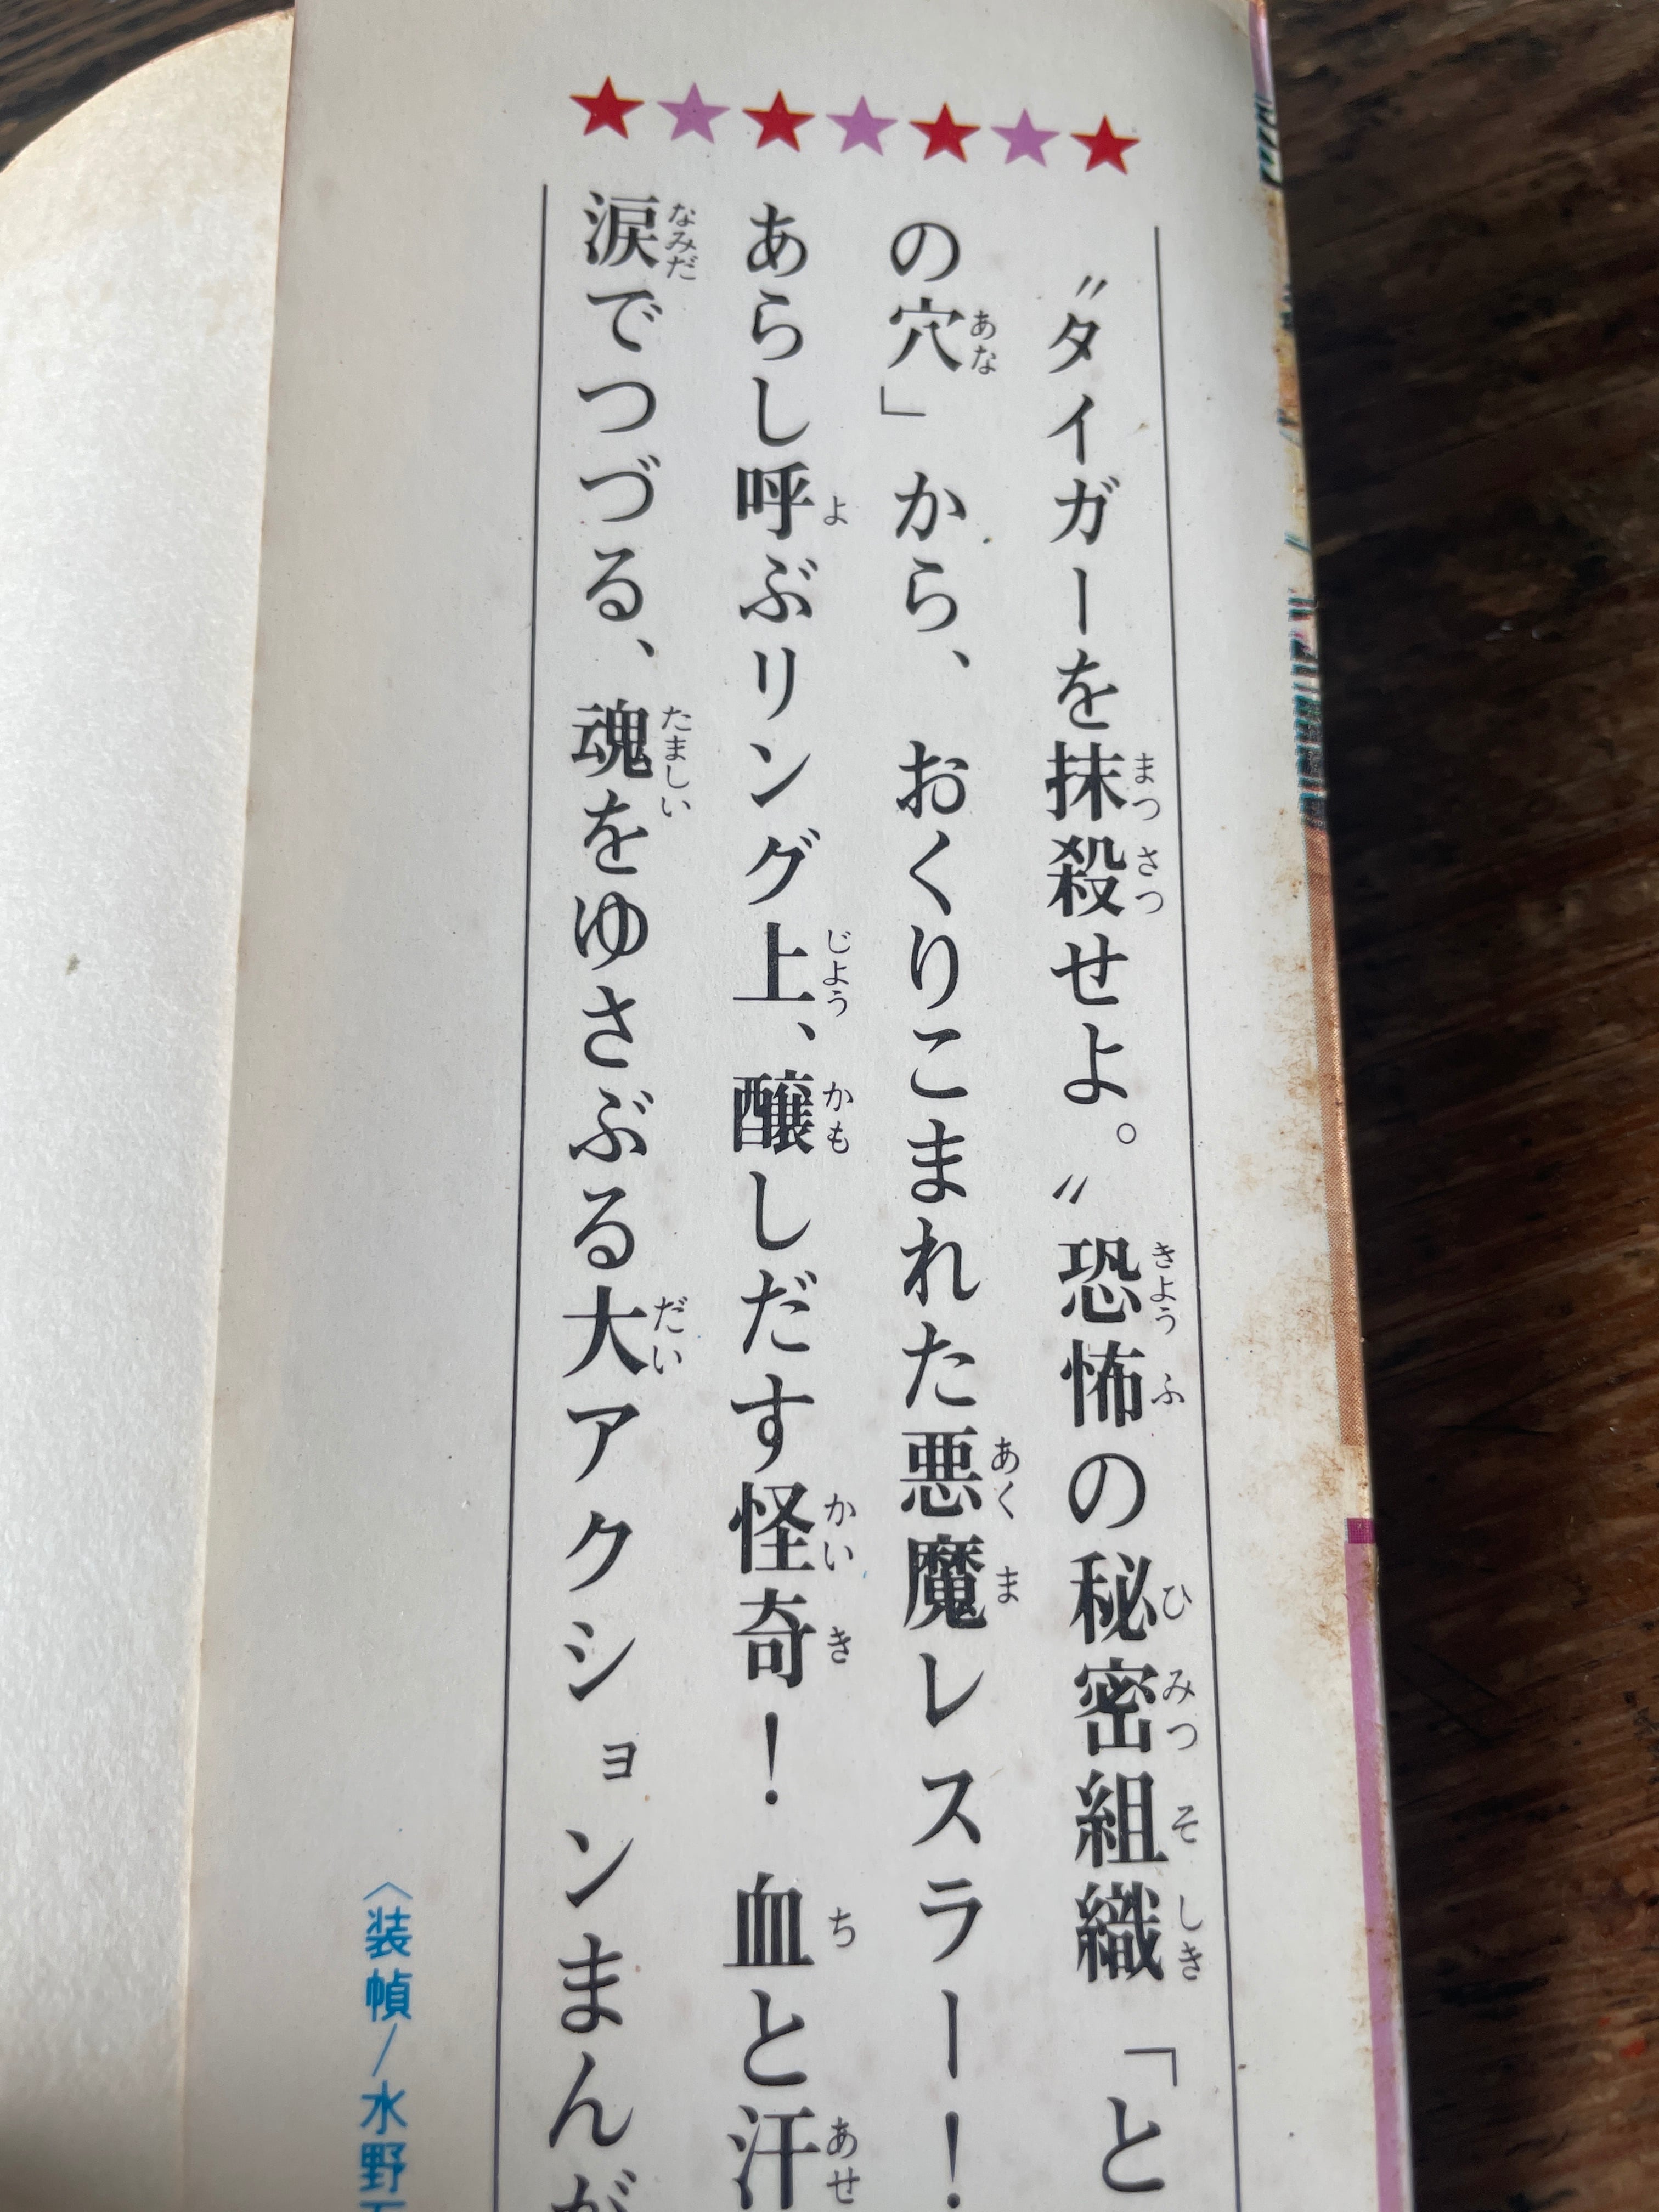 〝タイガーを抹殺せよ。〟恐怖の秘密組織「と
の穴」から、おくりこまれた悪魔レスラー！
あらし呼ぶリング上、醸しだす怪奇！　血と汗
涙でつづる、魂をゆさぶる大アクションまんが
〈装幀/水野